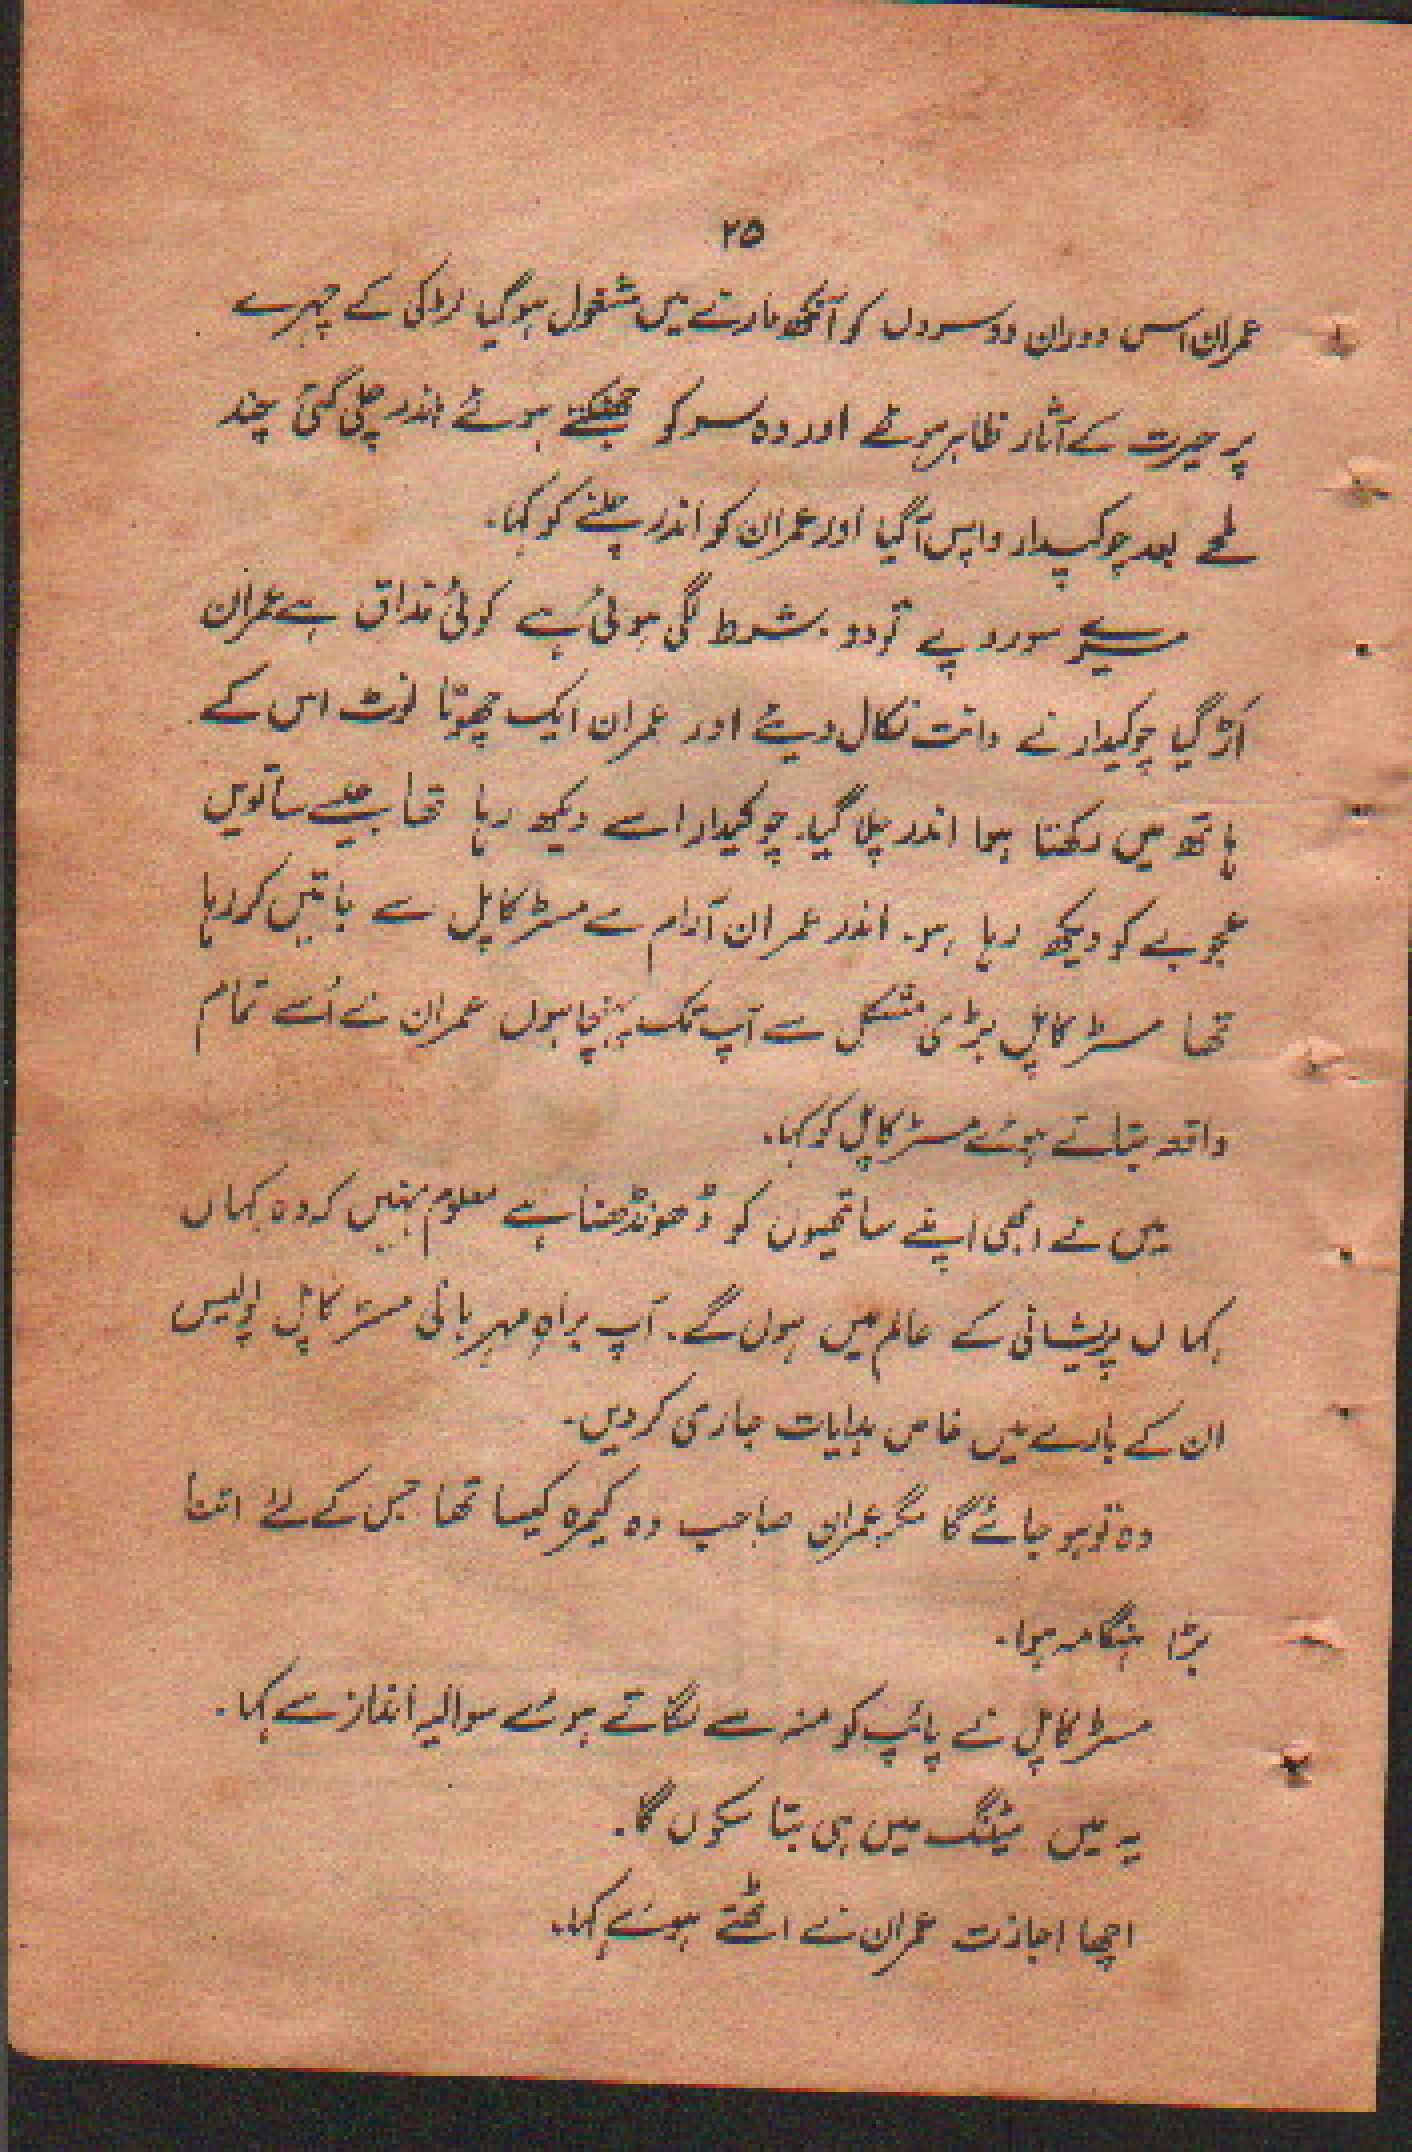 ۲۵
عمران اس دوران دوسروں کو آنکھ مارنے میں مشغول ہوگیا لڑکی کے چہرے
پر حیرت کے آثار ظاہر ہوئے اور وہ سر کو جھٹکتے ہوئے اندر چلی گئی چند
لمحے بعد چوکیدار واپس آگیا اور عمران کو اندر چلنے کو کہا۔
میرے سو روپے تو دو۔ شرط لگی ہوئی ہے کوئی مذاق ہے عمران
اَڑ گیا چوکیدار نے دانت نکال دیئے اور عمران ایک چھوٹا نوٹ اس کے
ہاتھ میں رکھتا ہوا اندر چلا گیا۔ چوکیدار اسے دیکھ رہا تھا جیسے ساتویں
عجوبے کو دیکھ رہا ہو۔ اندر عمران آرام سے مسٹر کاپل سے باتیں کر رہا
تھا مسٹر کاپل بڑی مشکل سے آپ تک پہنچا ہوں عمران نے اُسے تمام
واقعہ بتاتے ہوئے مسٹر کاپل کو کہا۔
میں نے ابھی اپنے ساتھیوں کو ڈھونڈھنا ہے معلوم نہیں کہ وہ کہاں
کہاں پریشانی کے عالم میں ہوں گے۔ آپ براہِ مہربانی مسٹر کاپل پولیس
ان کے بارے میں خاص ہدایات جاری کر دیں۔
وہ تو ہو جائے گا مگر عمران صاحب وہ کیمرہ کیسا تھا جس کے لئے اتنا
بڑا ہنگامہ ہوا۔
مسٹر کاپل نے پائپ کو منہ سے لگاتے ہوئے سوالیہ انداز سے کہا۔
یہ میں میٹنگ میں ہی بتا سکوں گا۔
اچھا اجازت عمران نے اٹھتے ہوئے کہا۔